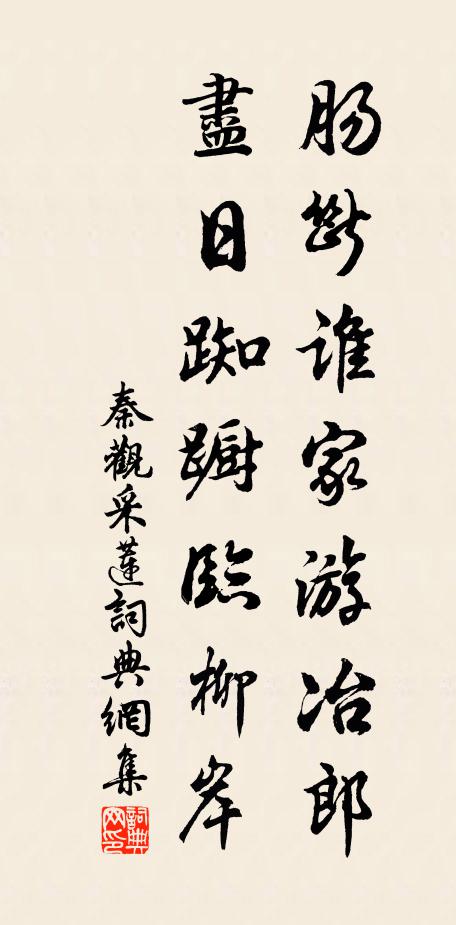 腸斷誰家游冶郎
盡日踟躕臨柳岸
秦觀采蓮詞典網集
詞典网印